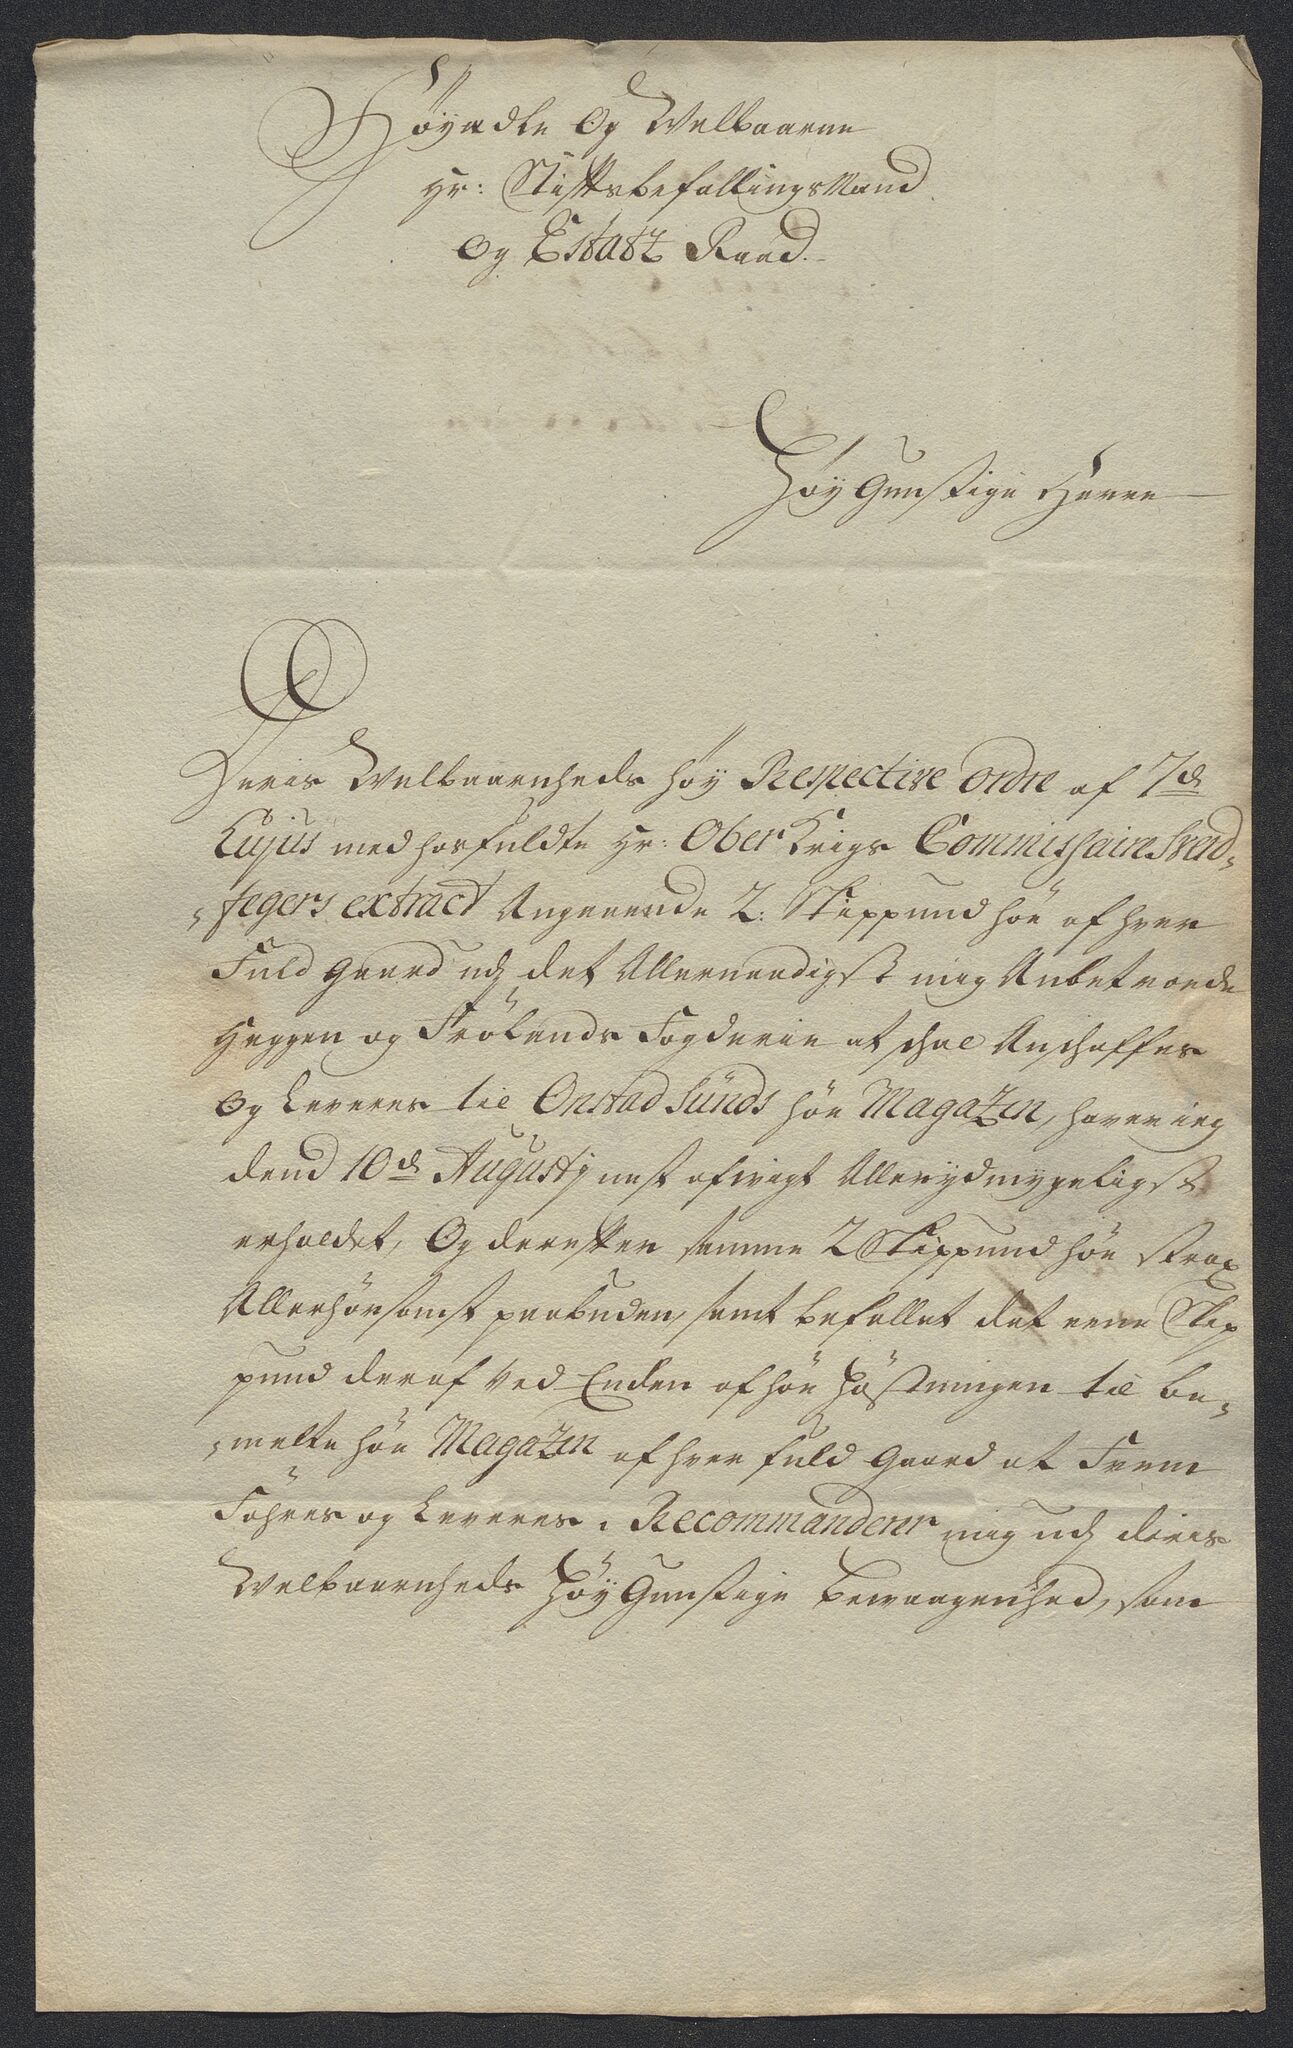 Høyædle Og Welbaarne
Hr: Stiftsbefallings Mand
Og Estatz Raad.
Høy Gunstige Herre
Deris Welbaarenheds høy Respective Ordre af 7d
Cujus medhosfuldte Hr: Ober Krigs Commissaire Svend-
-fegers extract Angaaende 2: Skippund høe af hver
Fuld Gaard udj det Allernaadigst mig Anbetroede
Heggen og Frølands Fogderie at schal Anschaffes
Og Leveres til Onstad Sunds høe Magazin, haver ieg
dend 10d Augustj nest afvigt Allerydmygeligst
erholdet, Og derefter samme 2 Skippund høe strax
Allerhørsomst paabuden, samt befallet det eene Skip
pund deraf ved Enden af høe Høstningen til be-
-melte høe Magazin af hver fuld Gaard at Frem
Føhres og Leveres. Recommanderer mig udj deris
Welbaarenheds Høy Gunstige bevaagenhed, som